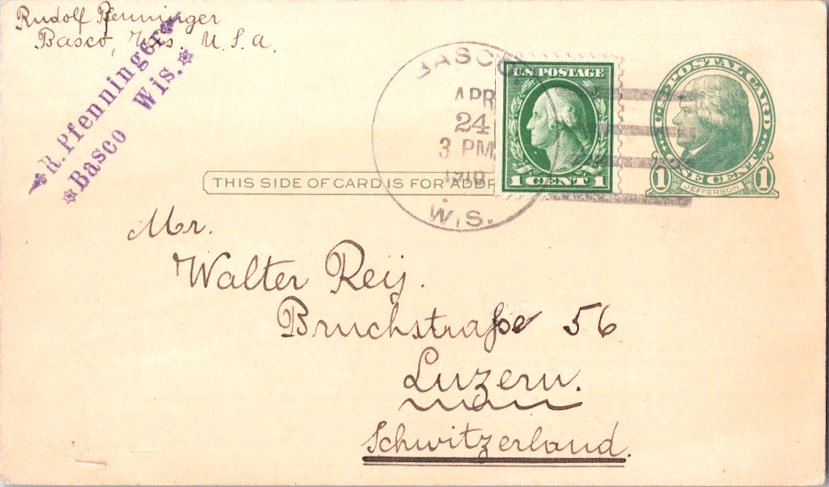 Rudolf Pfenninger
Basco, Wis. U. S. a.
R. Pfenninger
Basco Wis.
BASCO
APR
24
3 PM
WIS.
U.S. POSTAGE
1 CENT 1
U·S·POSTAL CARD
1 ONE CENT 1
JEFFERSON
THIS SIDE OF CARD IS FOR ADDR
Mr.
Walter Reij.
Bruchstraße 56
Luzern.
Schwitzerland.